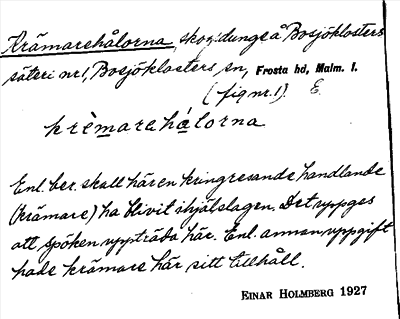 Krämarehålorna, skogsdunge å Bosjöklosters
säteri nr 1, Bosjöklosters sn, Frosta hd, Malm. l.
(fig nr. 1). E.
krèmarehålorna
Enl. ber. skall här en kringresande handlande
(krämare) ha blivit ihjälslagen. Det uppges
att spöken uppträda här. Enl. annan uppgift
hade krämare här sitt tillhåll.
EINAR HOLMBERG 1927